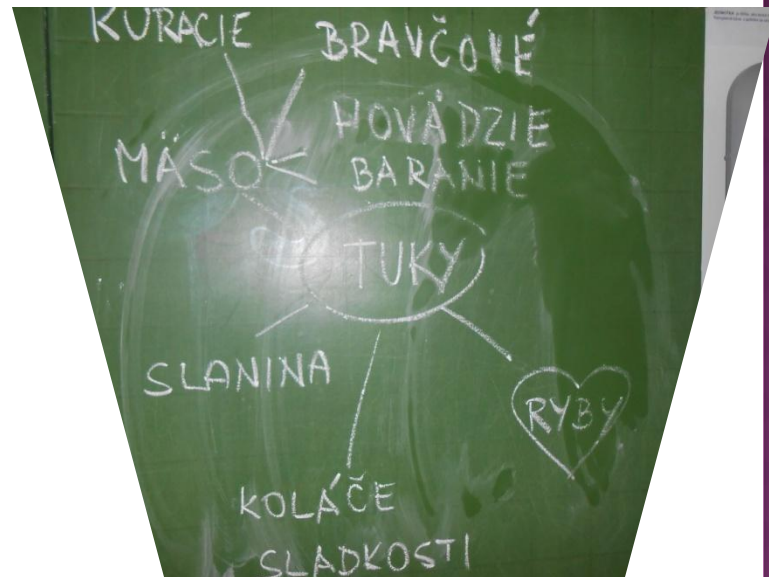 KURACIE
BRAVČOVÉ
HOVÄDZIE
MÄSO
BARANIE
TUKY
SLANINA
RYBY
KOLÁČE
SLADKOSTI